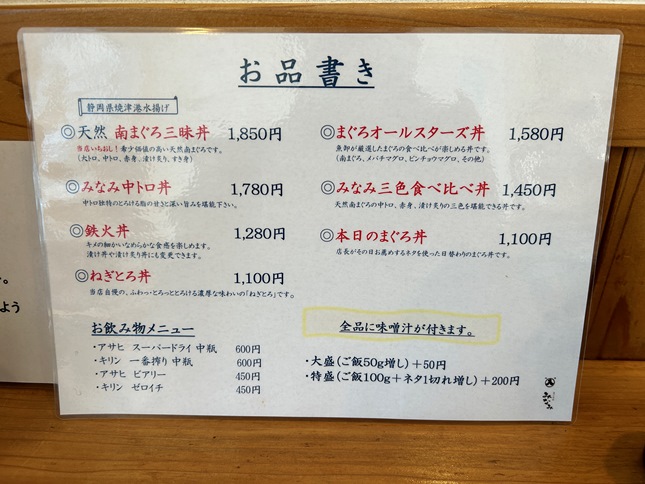 お品書き
静岡県焼津港水揚げ
◎天然 南まぐろ三昧丼 1,850円
当店いちおし!希少価値の高い天然南まぐろです。
(大トロ、中トロ、赤身、漬け炙り、すき身)
◎みなみ中トロ丼 1,780円
中トロ独特のとろける脂の甘さと深い旨みを堪能下さい。
◎鉄火丼 1,280円
キメの細かいなめらかな食感を楽しめます。
漬け丼や漬け炙り丼にも変更できます。
◎ねぎとろ丼 1,100円
当店自慢の、ふわっ・とろっととろける濃厚な味わいの「ねぎとろ」です。
◎まぐろオールスターズ丼 1,580円
魚卸が厳選したまぐろの食べ比べが楽しめる丼です。
(南まぐろ、メバチマグロ、ビンチョウマグロ、その他)
◎みなみ三色食べ比べ丼 1,450円
天然南まぐろの中トロ、赤身、漬け炙りの三色を堪能できる丼です。
◎本日のまぐろ丼 1,100円
店長がその日お薦めするネタを使った日替わりのまぐろ丼です。
お飲み物メニュー
・アサヒ スーパードライ 中瓶 600円
・キリン 一番搾り 中瓶 600円
・アサヒ ビアリー 450円
・キリン ゼロイチ 450円
全品に味噌汁が付きます。
・大盛(ご飯50g増し)+50円
・特盛(ご飯100g+ネタ1切れ増し)+200円
みなみ
。
よう